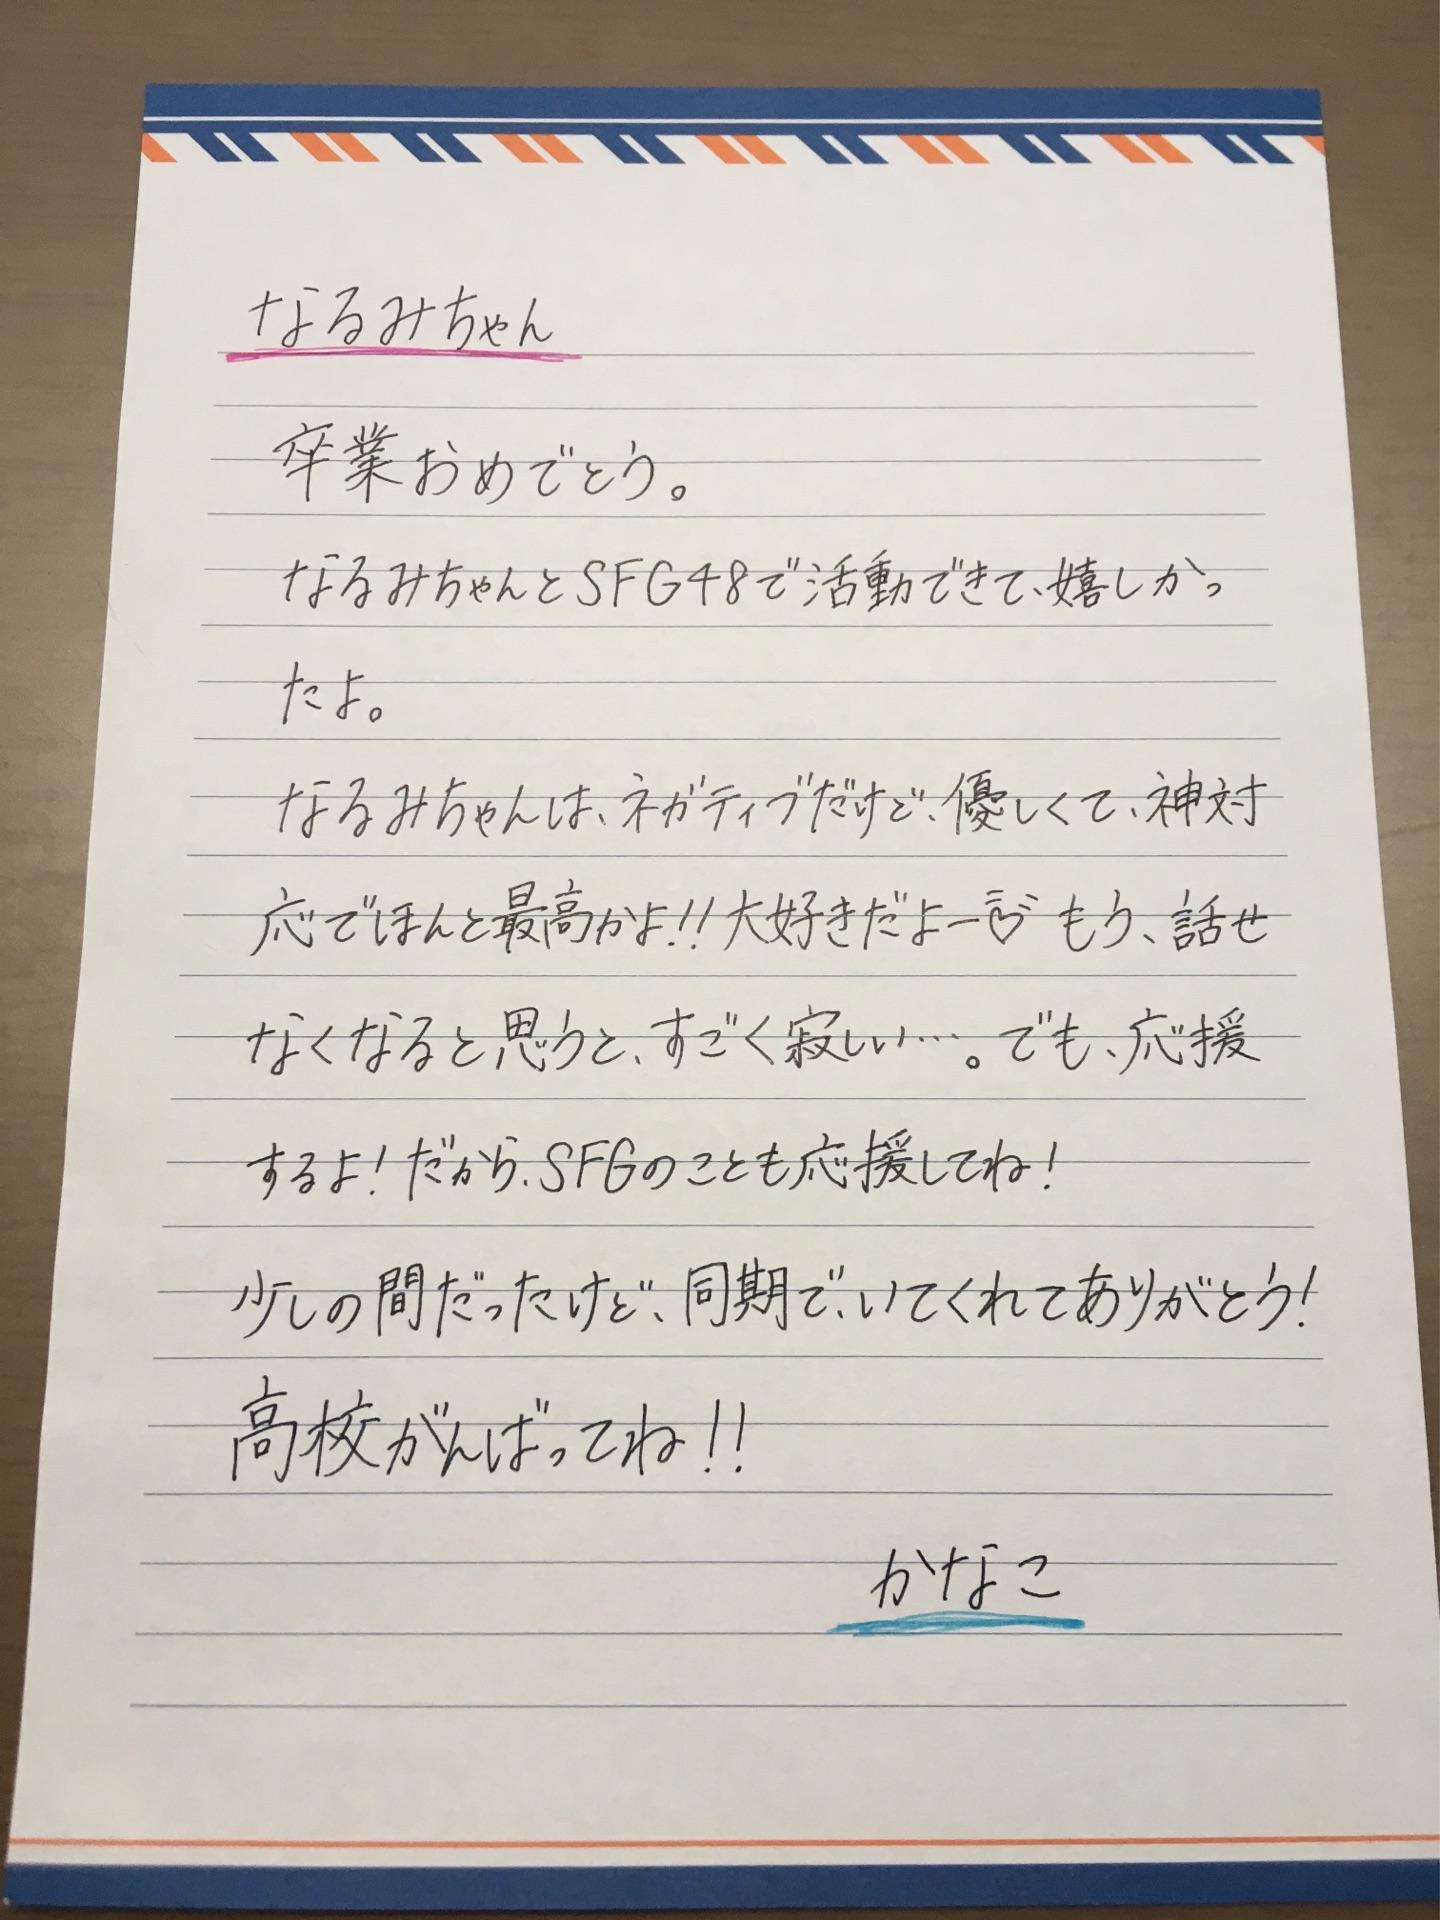 なるみちゃん
卒業おめでとう。
なるみちゃんとSFG48で活動できて、嬉しかっ
たよ。
なるみちゃんは、ネガティブだけど、優しくて、神対
応でほんと最高かよ!!大好きだよー♡もう、話せ
なくなると思うと、すごく寂しい…。でも、応援
するよ!だから、SFGのことも応援してね!
少しの間だったけど、同期で、いてくれてありがとう!
高校がんばってね!!
かなこ